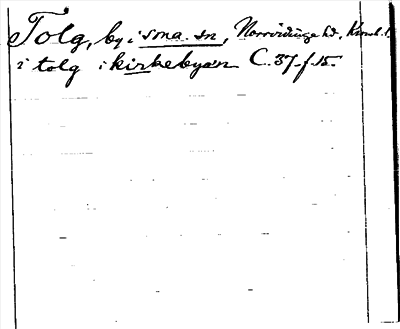 Tolg, by i sma. sn, Norrvidinge hd, Kronob. l.
i tolg i kirkebyæn C. 37. f. 15.